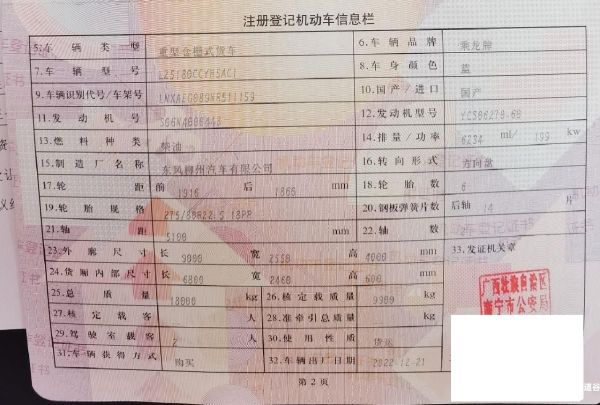 注册登记机动车信息栏
5.车辆类型 重型仓栅式货车 6.车辆品牌 乘龙牌
7.车辆型号 8.车身颜色 蓝
9.车辆识别代号/车架号 10.国产/进口 国产
11.发动机号 12.发动机型号
13.燃料种类 柴油 14.排量/功率 6234 ml/ 199 kw
15.制造厂名称 东风柳州汽车有限公司 16.转向形式 方向盘
17.轮距 前 1916 后 1866 mm 18.轮胎数 6
19.轮胎规格 275/80R22.5 18PR 20.钢板弹簧片数 后轴 14 片
21.轴距 5100 mm 22.轴数 2
23.外廓尺寸 长 9000 宽 2550 高 4000 mm 33.发证机关章
24.货厢内部尺寸 长 6800 宽 2460 高 600 mm
25.总质量 18000 kg 26.核定载质量 9900 kg
27.核定载客 人 28.准牵引总质量 kg
29.驾驶室载客 2 人 30.使用性质 货运
31.车辆获得方式 购买 32.车辆出厂日期 2022-12-21
广西壮族自治区
南宁市公安局
第2页